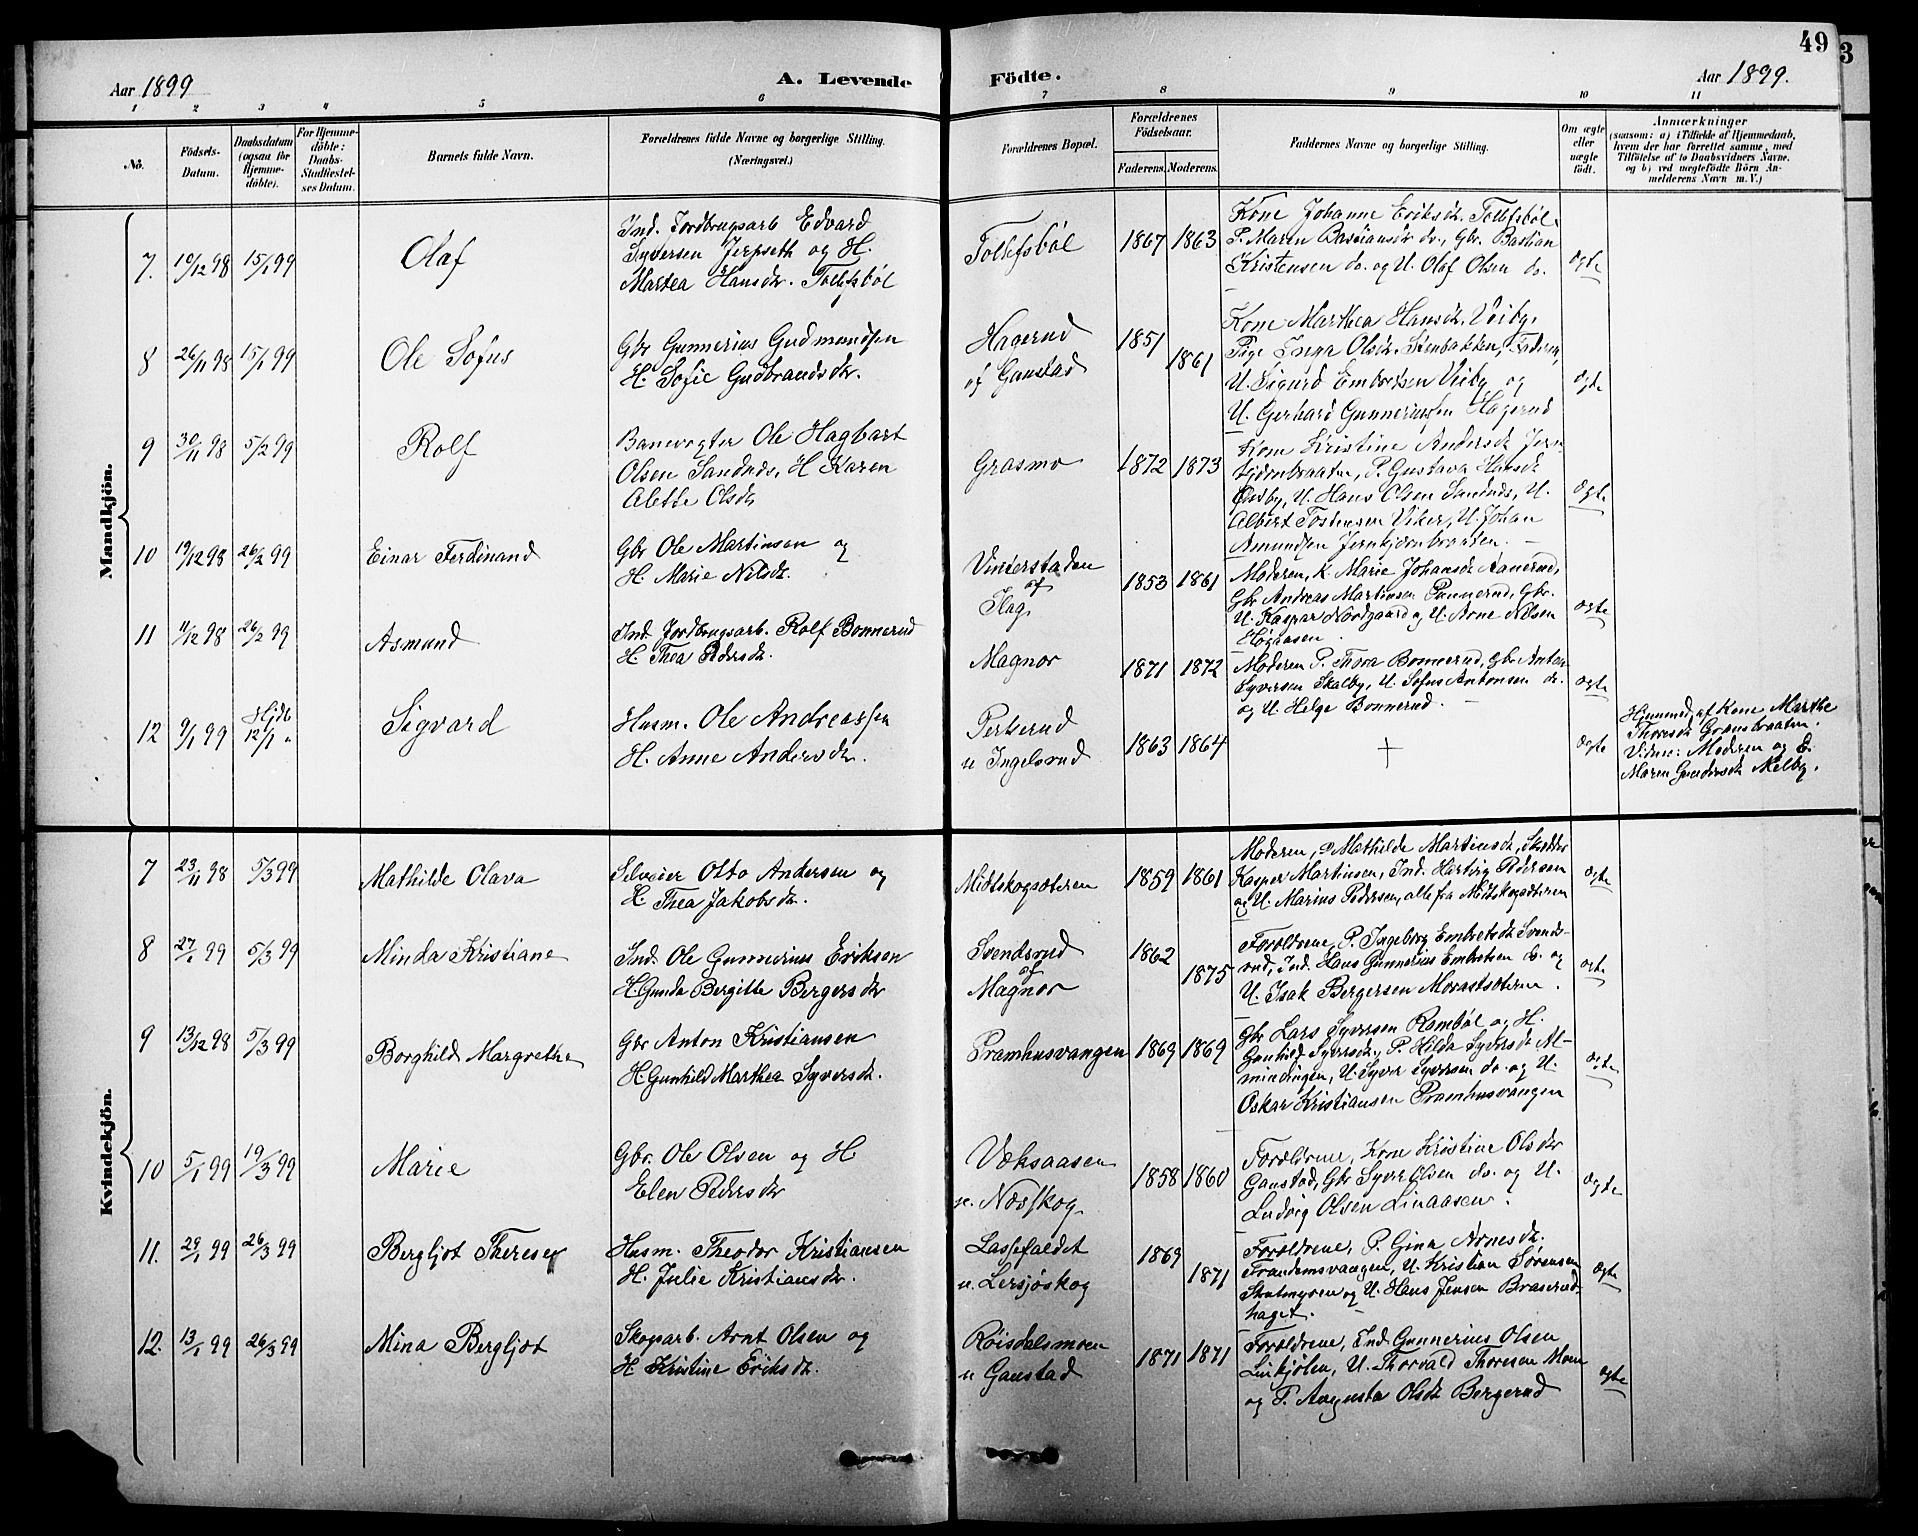 49
3
Aar 1899
A. Levende
Födte.
Aar 1899.
1 2 3 4 5 6 7 8 9 10 11
No.
Födsels-
Datum.
Daabsdatum
(ogsaa for
Hjemme-
döbte).
For Hjemme-
döbte:
Daabs-
Stadfæstel-
ses Datum.
Barnets fulde Navn.
Forældrenes fulde Navne og borgerlige Stilling.
(Næringsvei.)
Forældrenes Bopæl.
Forældrenes
Födselsaar.
Faderens. Moderens.
Faddernes Navne og borgerlige Stilling.
Om ægte
eller
uægte
födt.
Anmærkninger
(saasom: a) i Tilfælde af Hjemmedaab,
hvem der har forrettet samme, med
Tilföielse af to Daabsvidners Navne,
og b) ved uægtefödte Börn An-
melderens Navn m. V.)
Mandkjön.
7. 10/12 98 15/1 99
Olaf
Ind. Jordbrugsarb Edvard
Syversen Jerpseth og H.
Martea Hansdr. Tollefsböl
Tollefsböl
1867 1863
Kone Johanne Eriksdr. Tollefsböl
P. Maren Bastiansdr do., Gbr. Bastian
Kristensen do. og U. Olaf Olsen do.
Ægte
8 26/11 98 15/1 99
Ole Sofus
Gbr Gunnerius Gudmundsen
H. Sofie Gudbrandsdr.
Hagerud
af Gaustad
1851 1861
Kone Marthea Hansdr. Veiby,
Pige Inga Olsdr. Fadern,
U. Sigurd Embretsen Veiby og
U. Gerhard Gunneriussen Hagerud
Ægte
9 30/11 98 5/2 99
Rolf
Banevogter Ole Hagbart
Olsen Sandnæs, H Karen
Alette Olsdr
Grasmo
1872 1873
Kone Kristine Andersdr Jern-
P. Gustava Hansdr
U. Hans Olsen Sandnæs, U.
Albert Tostensen Viker, U. Johan
Amundsen
Ægte
10 19/12 98 26/2 99
Einar Ferdinand
Gbr Ole Martinsen og
H. Marie Nilsdr.
Vinterstaden
af
Flag.
1853 1861
Moderen, K. Marie Johansdr Aanerud,
Gbr Andreas Martinsen Pannerud, Gbr.
U. Kaspar Nordgaard og U. Arne Nilsen
Høgaasen
Ægte
11 11/12 98 26/2 99
Asmund
Ind. Jordbrugsarb. Rolf Bonnerud
H. Thea Pedersdr.
Magnor
1871 1872
Moderen P. Thora Bonnerud, Gbr Anton
Syversen Skalby, U. Sofus Antonsen do.
og U. Helge Bonnerud.
Ægte
12 9/1 99 Hjdb 12/1 "
Sigvard
Husm. Ole Andreassen
H. Anne Andersdr.
Perserud
u Ingelsrud
1863 1864
+
Ægte
Hjemmed. af Kone Marthe
Thoresdr Gransbraaten.
Vidne: Moderen og E.
Maren Gundersdr Melby.
Kvindekjön.
7 23/11 98 5/3 99
Mathilde Olava
Selveier Otto Andersen og
H. Thea Jakobsdr.
Midtskogsæteren
1859 1861
Moderen, P Mathilde Martinsdr,
Kasper Martinsen, Ind. Hartvig Pedersen
og U. Marius Pedersen, alle fra Midtskogsæteren
Ægte
8 27/1 99 5/3 99
Minda Kristiane
Ind. Ole Gunnerius Eriksen
H. Gunda Bergitte Bergersdr
Svendsrud
af
Magnor
1862 1875
Forældrene, P. Ingeborg Embretsdr Svends-
rud, Ind. Hans Gunnerius Embretsen do. og
U. Isak Bergersen Morastsæteren.
Ægte
9 13/12 98 5/3 99
Borghild Margrethe
Gbr Anton Kristiansen
H. Gunhild Marthea Syversdr.
Pramhusvangen
1869 1869
Gbr Lars Syversen Ramböl og H.
Gunhild Syversdr., P. Hilda Syversdr
U. Syver Syversen do. og U.
Oskar Kristiansen Pramhusvangen
Ægte
10 5/1 99 19/3 99
Marie
Gbr. Ole Olsen og H
Elen Pedersdr
Væksaasen
u. Næsskog
1858 1860
Forældrene, Kone Kristine Olsdr
Gaustad, Gbr Syver Olsen do. og U.
Ludvig Olsen Linaasen.
Ægte
11. 29/1 99 26/3 99
Bergljot Therese
Husm. Theodor Kristiansen
H. Julie Kristiansdr.
Lassefaldet
u. Lersjöskog
1869 1871
Forældrene, P. Gina Arnesdr.
U. Kristian Sörensen
og U. Hans Jensen Braserud-
haget.
Ægte
12. 13/1 99 26/3 99
Mina Bergljot
Skogsarb. Arnt Olsen og
H. Kristine Eriksdr.
Röisdalsmoen
u Gaustad
1871 1871
Forældrene, Ind Gunnerius Olsen
Linkjölen, U. Thorvald Thoresen Moen
og P. Augusta Olsdr Bergerud
Ægte